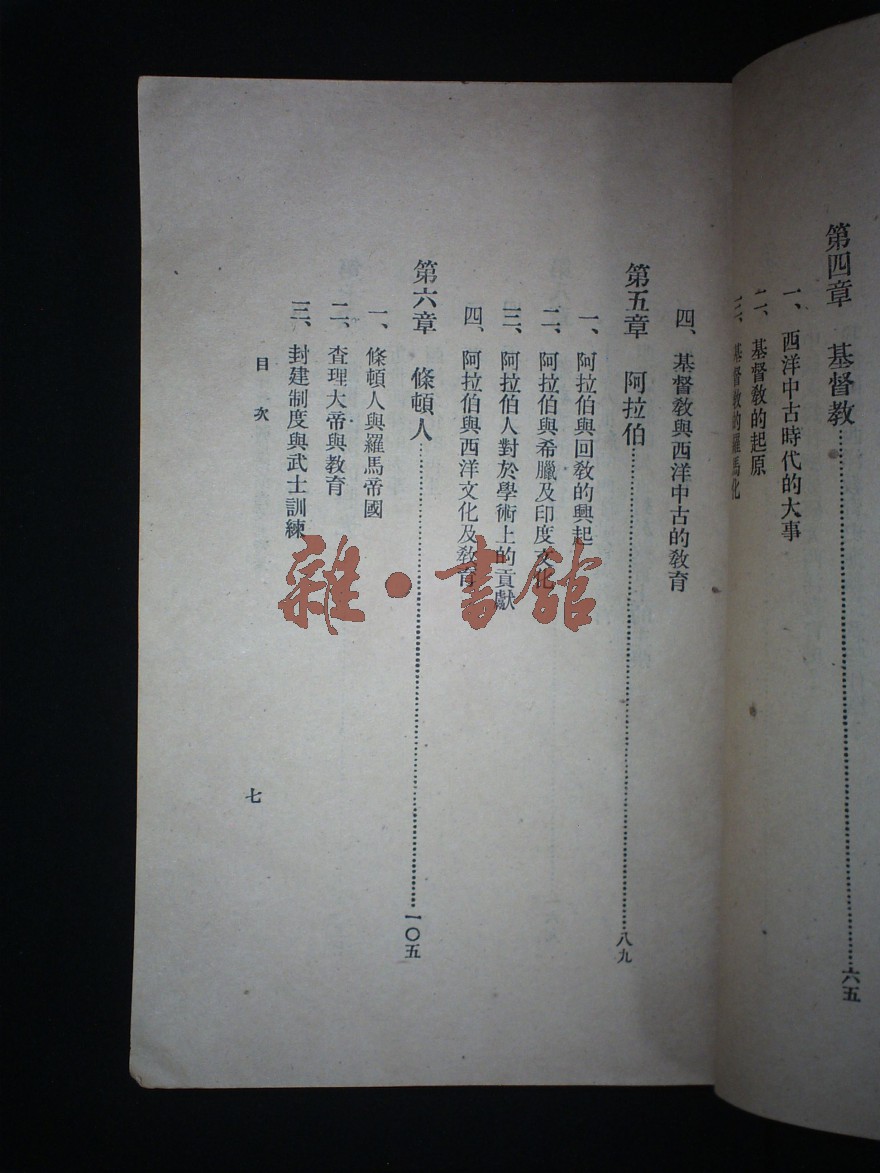 第四章　基督教……六五
一、西洋中古時代的大事
二、基督教的起原
三、基督教的羅馬化
四、基督教與西洋中古的教育
第五章　阿拉伯……八九
一、阿拉伯與回教的興起
二、阿拉伯與希臘及印度文化
三、阿拉伯人對於學術上的貢獻
四、阿拉伯與西洋文化及教育
第六章　條頓人……一〇五
一、條頓人與羅馬帝國
二、查理大帝與教育
三、封建制度與武士訓練
目次
七
雜·書館